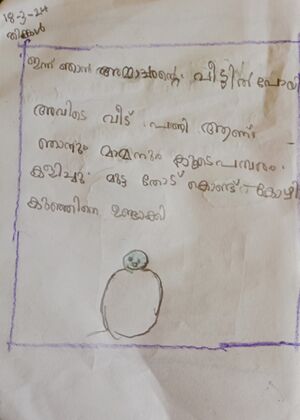 18-3-24
തിങ്കൾ
ഇന്ന് ഞാൻ അമ്മാമ്മന്റെ വീട്ടിൽ പോയി
അവിടെ വീട് പണി ആണ്
ഞാനും മാമനും കൂടെ പമ്പരം
കളിച്ചു. മുട്ട തോട് കൊണ്ട് കോഴി
കുഞ്ഞിനെ ഉണ്ടാക്കി